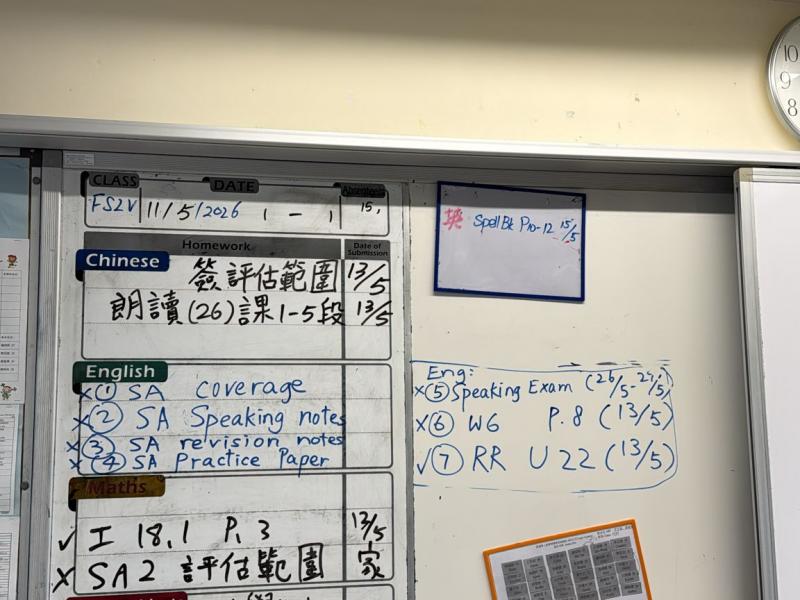 CLASS DATE Absentees
FS2V 11/5/2026 ( - ) 15,
Homework Date of Submission
Chinese
簽評估範圍 13/5
朗讀(26)課1-5段 13/5
English
x① SA coverage
x② SA Speaking notes
x③ SA revision notes
x④ SA Practice Paper
Maths
✓ 工 18.1 P.3 13/5
x SA2 評估範圍 家
英 Spell Bk P10-12 15/5
Eng:
x⑤ Speaking Exam (26/5-29/5)
x⑥ WG P.8 (13/5)
✓⑦ RR U22 (13/5)
10
9
8